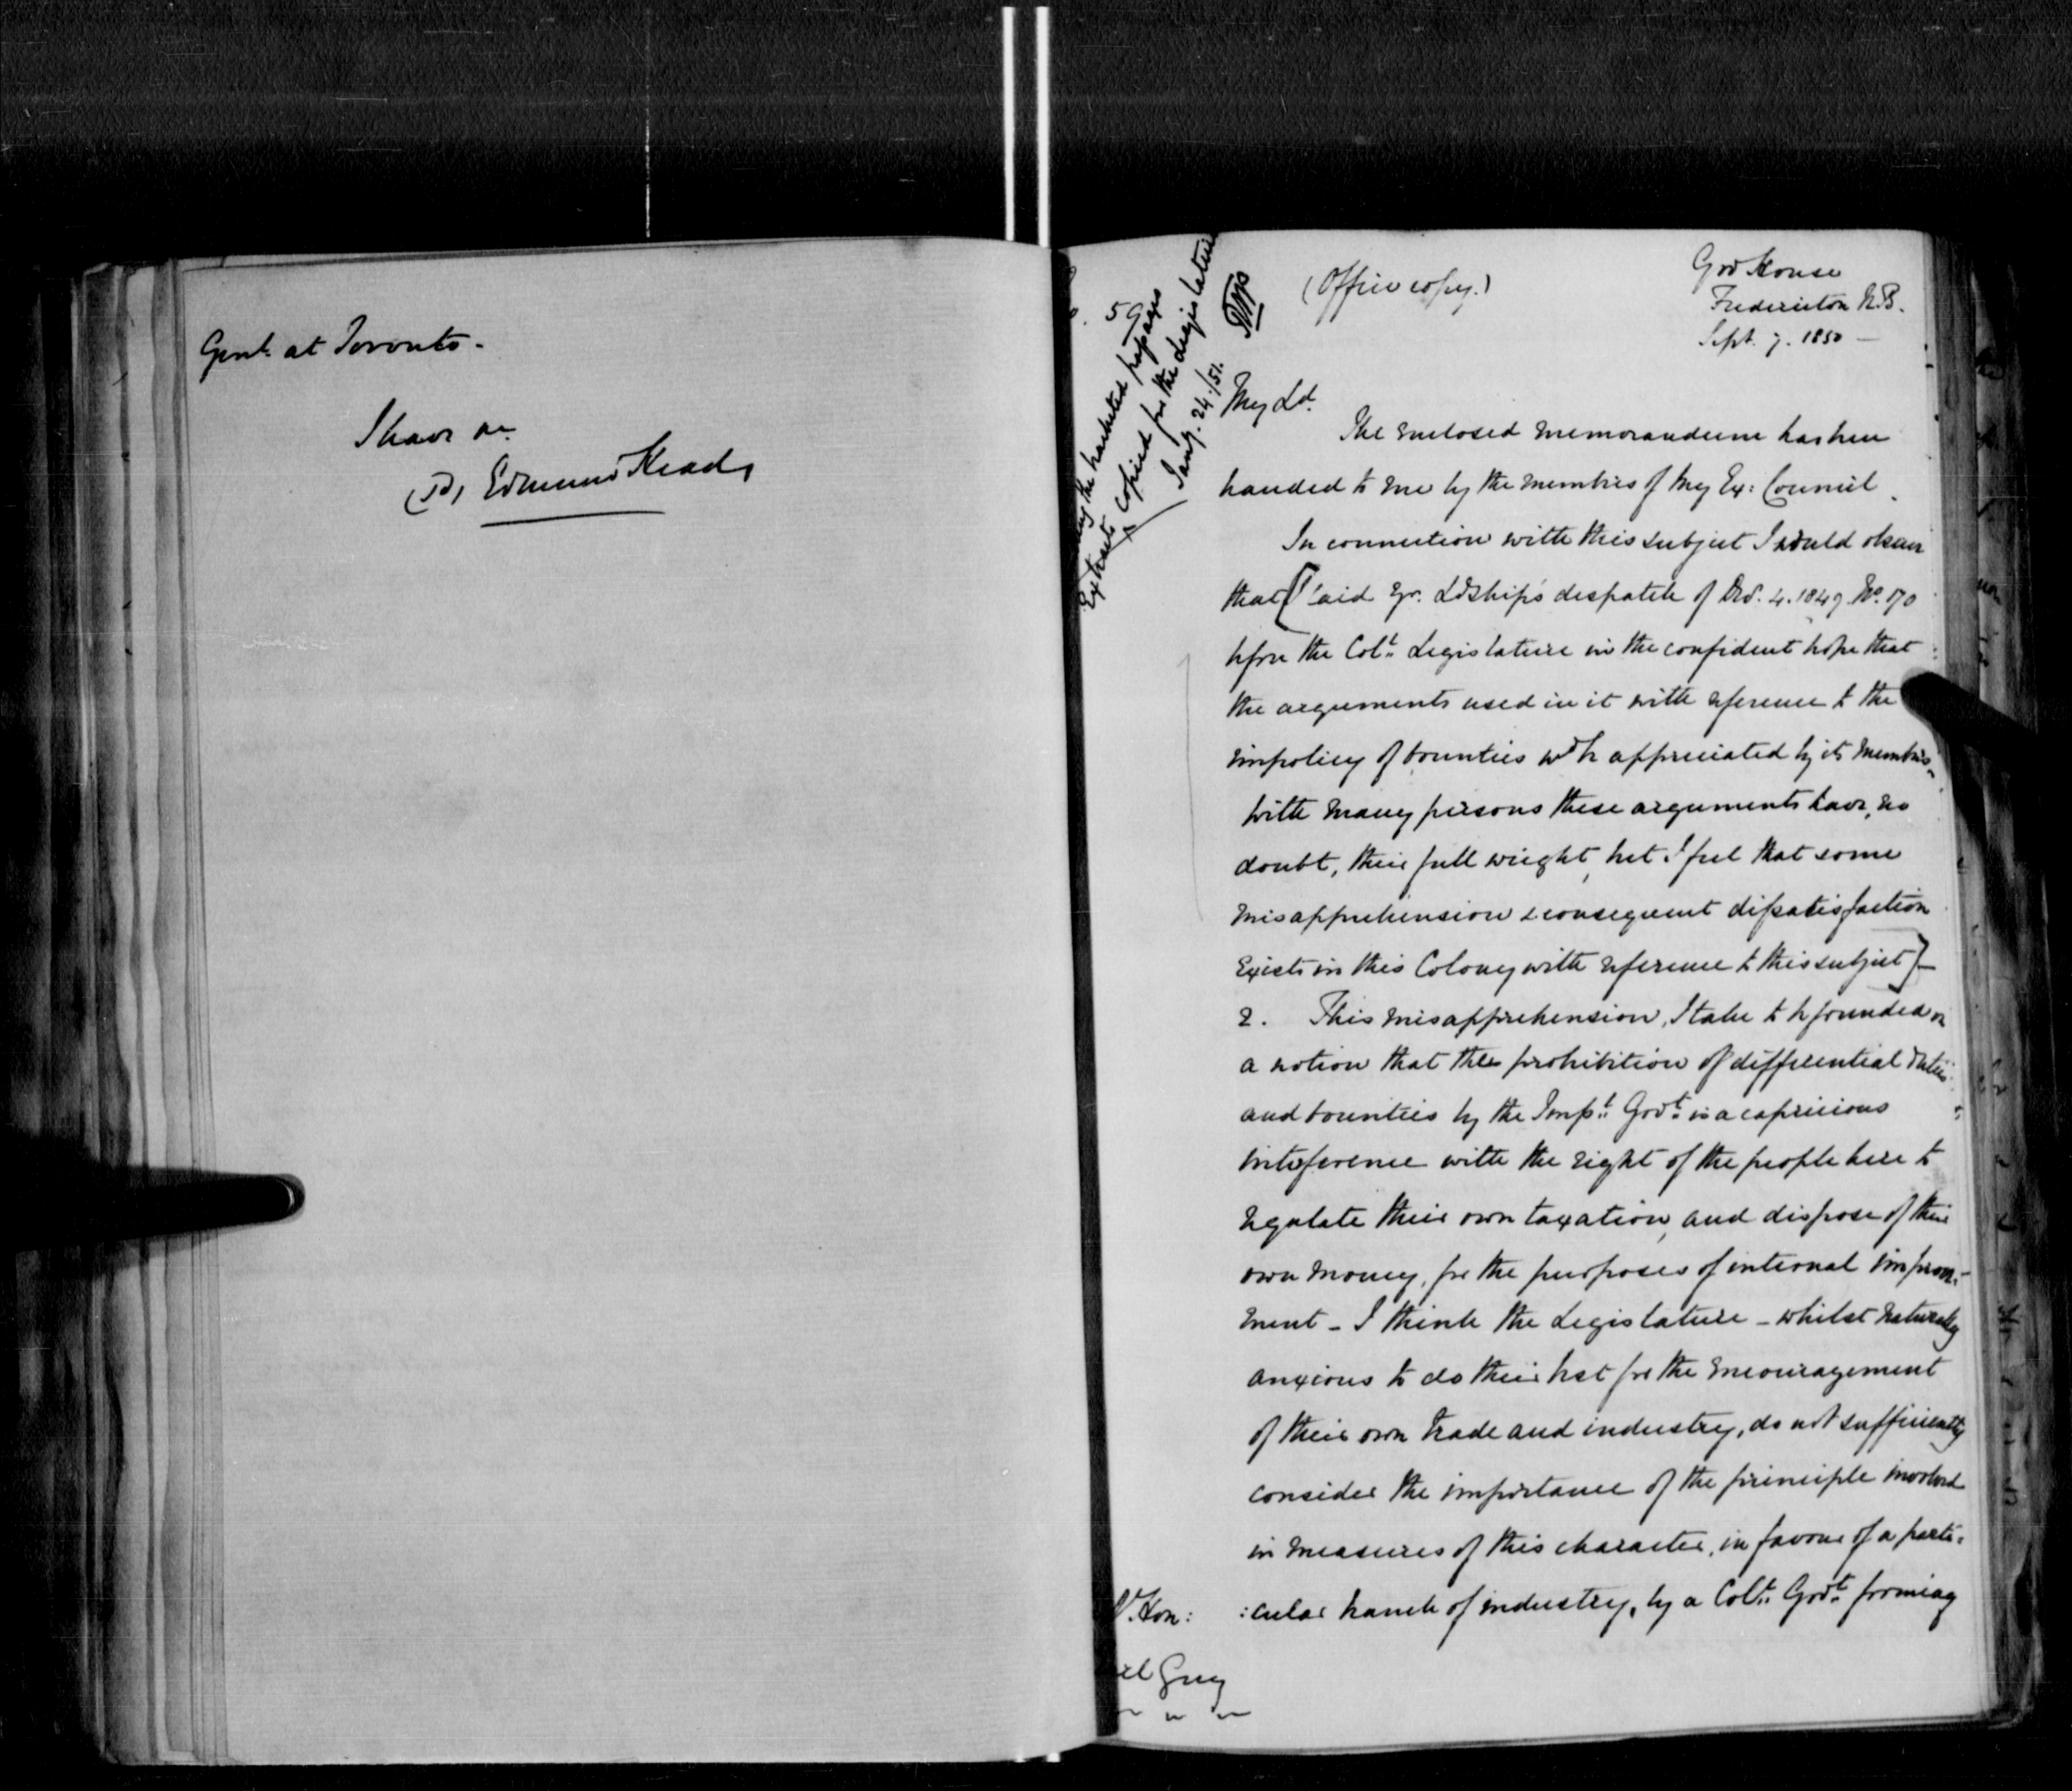 Govt. at Toronto.
I have &c.
(Sd) Edmund Head
59
(Office copy.)
Gov House
Fredericton N.B.
Sept. 7. 1850 —
the bracketed passages
Extracts copied for the Legislature
Jany. 24./51.
My Ld.
The enclosed memorandum has been
handed to me by the members of my Ex: Council.
In connection with this subject I would observe
that [I laid Yr. Ldship's despatch of Decr. 4. 1849 No. 170
before the Coll. Legislature in the confident hope that
the arguments used in it with reference to the
impolicy of bounties wd be appreciated by its members.
With many persons these arguments have, no
doubt, their full weight, but I feel that some
misapprehension & consequent dissatisfaction
exists in this Colony with reference to this subject] —
2. This misapprehension, I take to be founded on
a notion that the prohibition of differential duties
and bounties by the Impl. Govt. is a capricious
interference with the right of the people here to
regulate their own taxation, and dispose of their
own money, for the purposes of internal improve-
ment – I think the Legislature – whilst naturally
anxious to do their best for the encouragement
of their own trade and industry, do not sufficiently
consider the importance of the principle involved
in measures of this character, in favour of a parti:
:cular branch of industry, by a Coll. Govt. forming
Rt. Hon:
Earl Grey